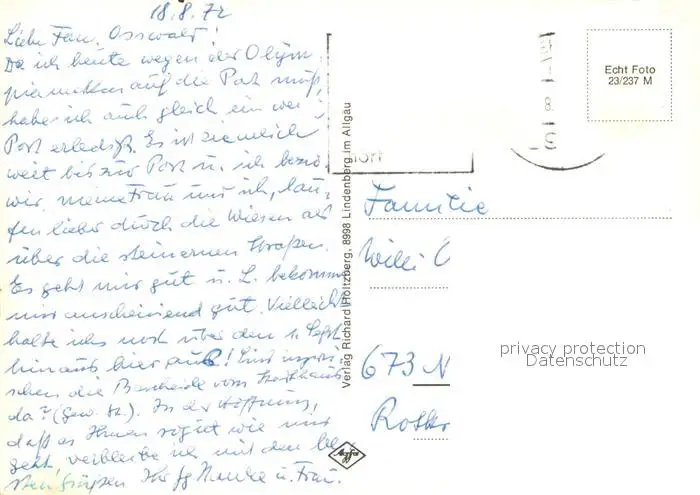 18.8.72
Liebe Fam. Osswald!
Da ich heute wegen der Olym-
piamarken auf die Post muß,
habe ich auch gleich ein wei
Post erledigt. Es ist ziemlich
weit bis zur Post u. ich bezw.
wir, meine Frau und ich, lau-
fen lieber durch die Wiesen als
über die steinernen Straßen.
Es geht mir gut u. L. bekommt
mir anscheinend gut. Vielleicht
halte ich noch über den 1. Sept.
hinaus hier aus! Sind inzwi-
schen die Bescheide vom
da? (Gew. St.). In der Hoffnung,
daß es Ihnen so gut wie mir
geht, verbleibe ich mit den be-
sten Grüßen Ihr u. Frau.
Verlag Richard Holtzberg, 8998 Lindenberg im Allgäu
Agfa
Echt Foto
23/237 M
8.
Familie
Willi
673 N
privacy protection
Datenschutz